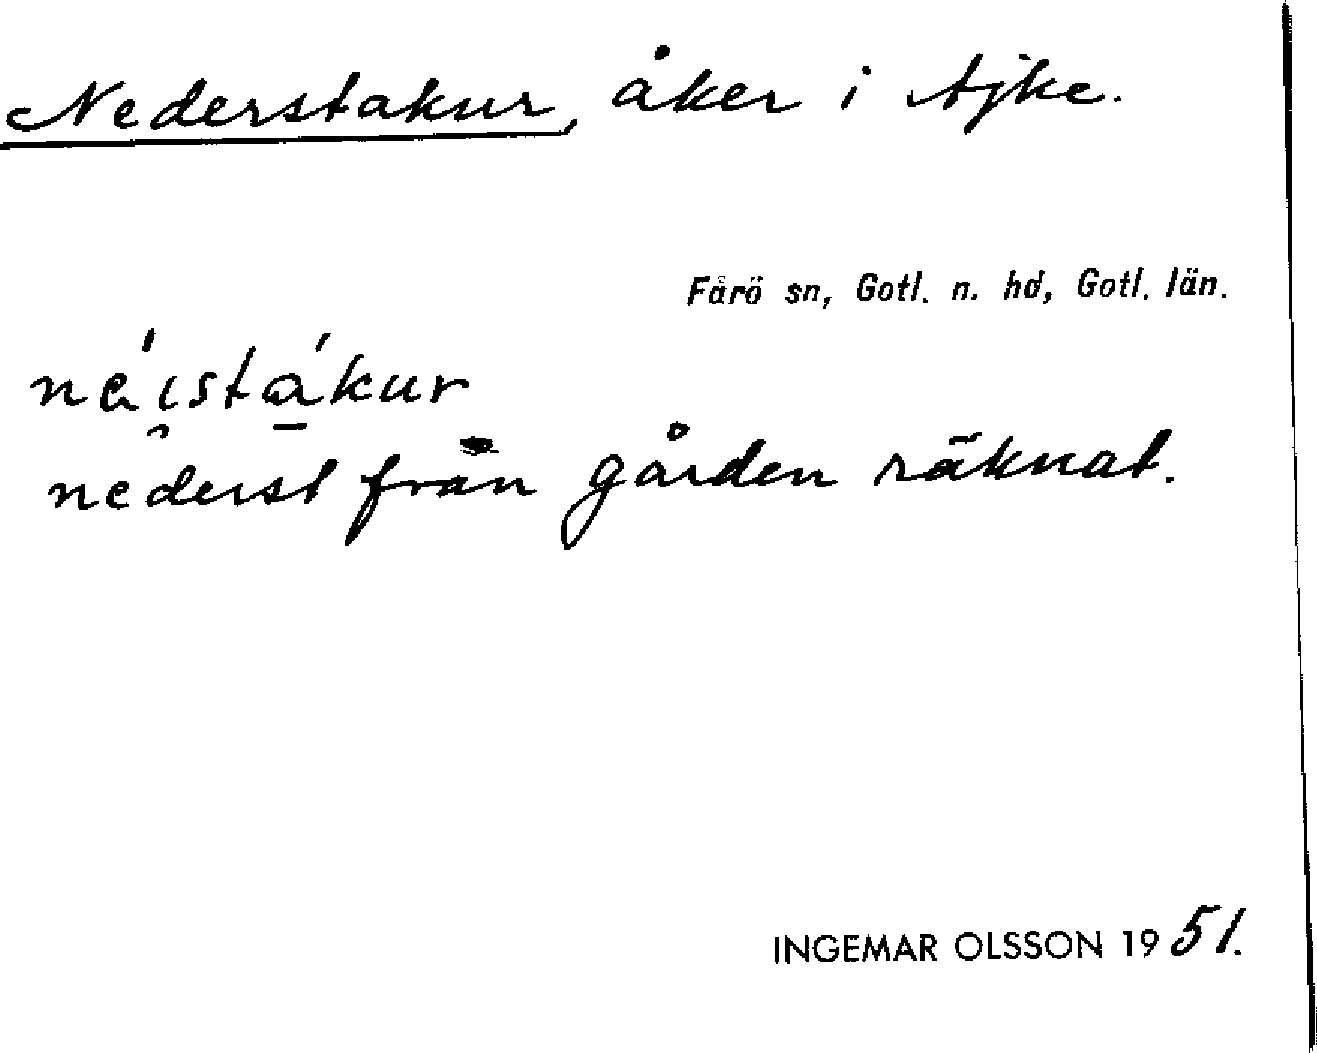 Nederstakur, åker i Ajke.
Fårö sn, Gotl. n. hd, Gotl. län.
nederst från gården räknat.
INGEMAR OLSSON 1951.